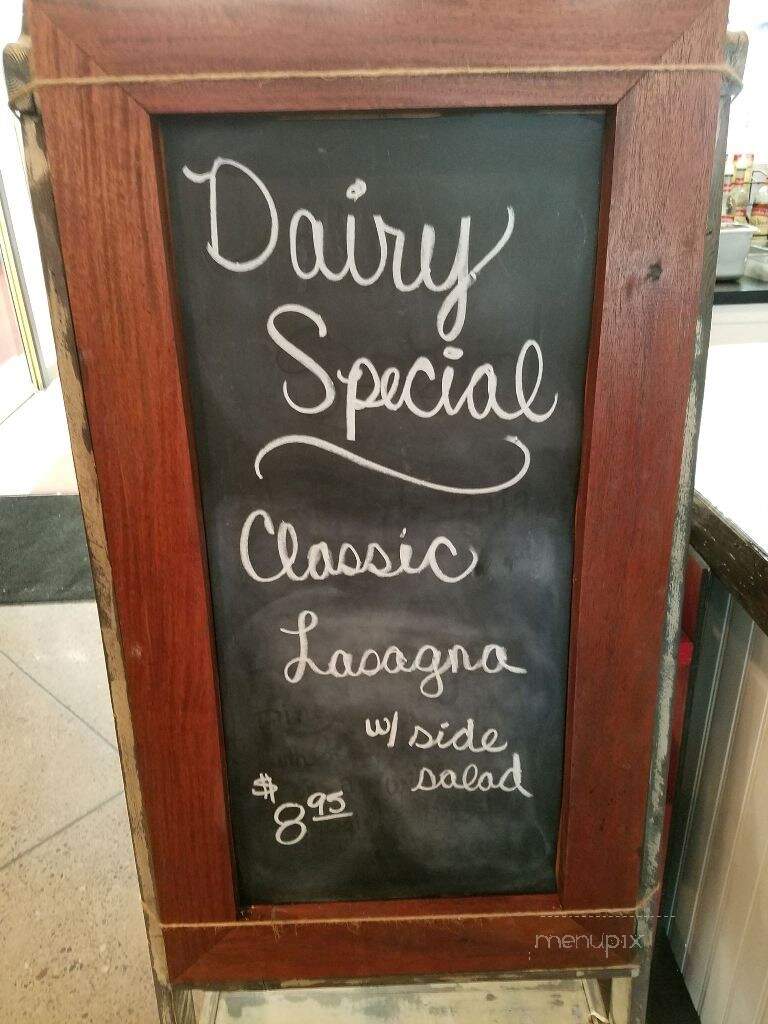 Dairy
Special
Classic
Lasagna
w/ side
salad
$8.95
menupix